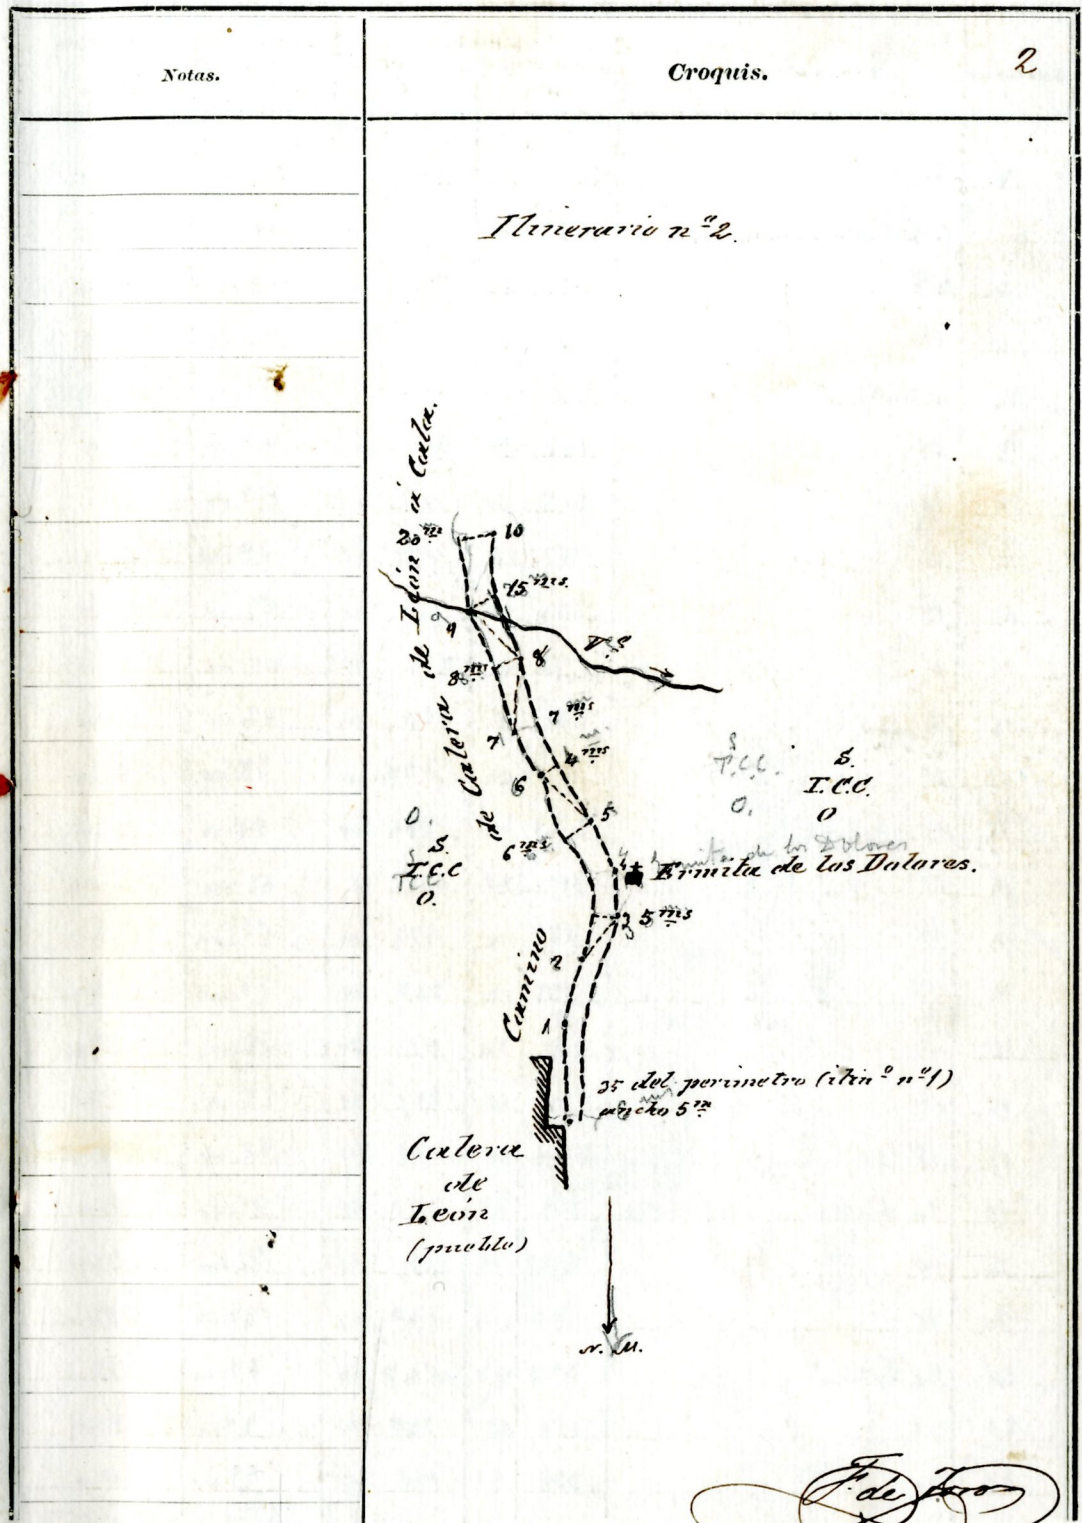 Notas.
Croquis.
2
Itinerario nº 2.
Camino de Calera de León á Cala.
20 m
10
15 ms.
9
8
8 m
7 ms
7
4 ms
6
5
S.
T.C.C.
O.
S.
T.C.C.
O
O.
S.
T.C.C
O.
6 ms
4
Ermita de los Dolores
Ermita de los Dolores.
3
5 ms
2
1
35 del perimetro (itinº nº 1)
ancho 5 m
Calera
de
León
(pueblo)
N. M.
F. de